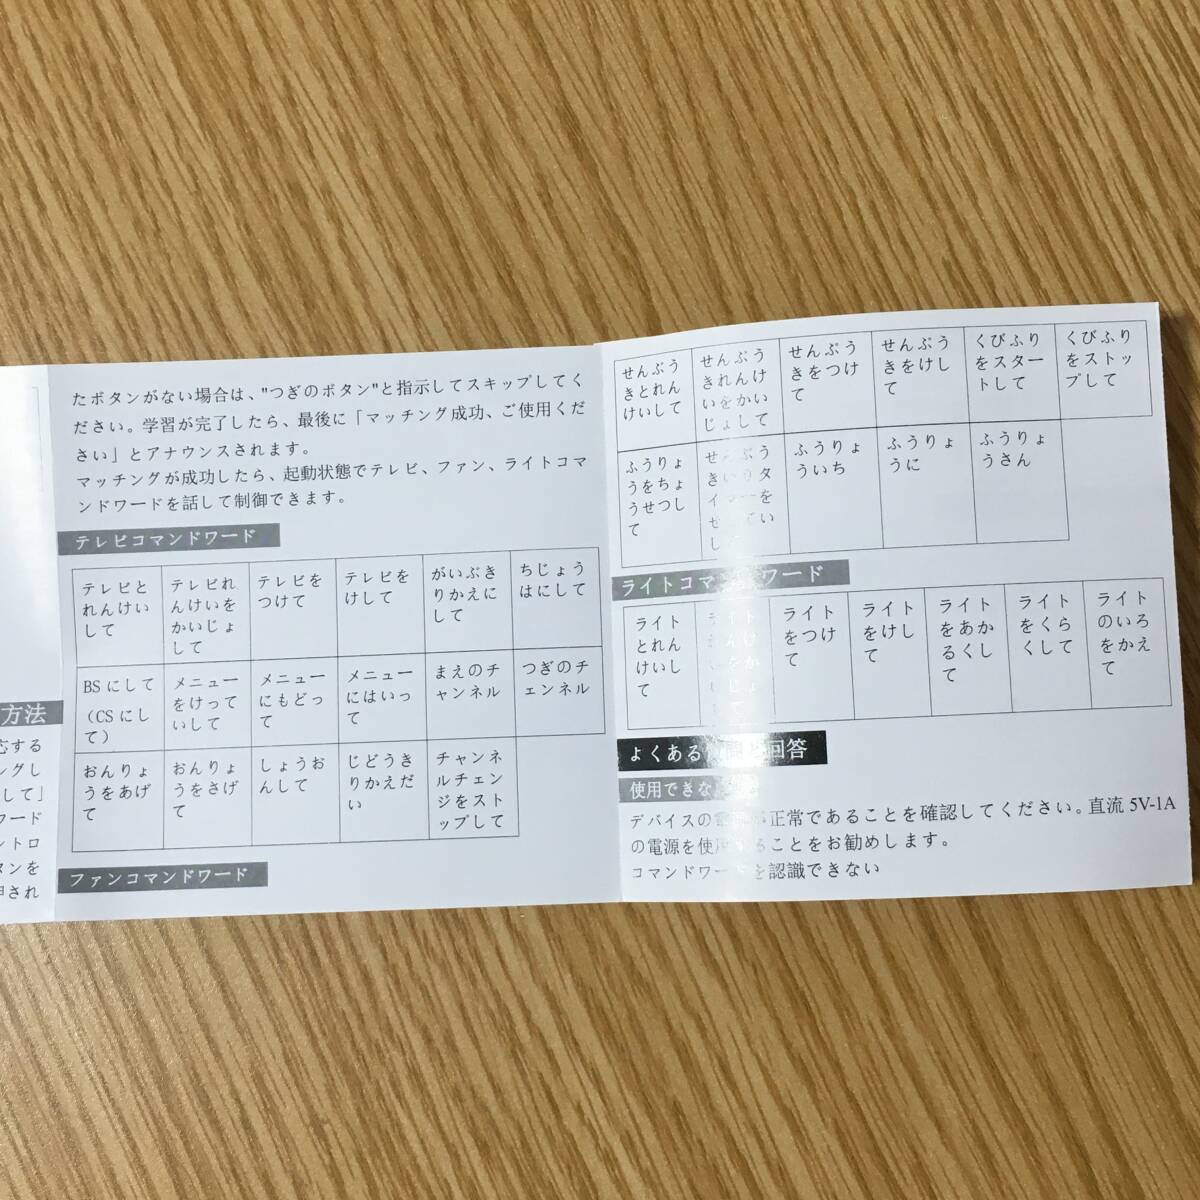 方法
応する
ングし
して」
ワード
ントロ
タンを
押され
たボタンがない場合は、"つぎのボタン"と指示してスキップしてく
ださい。学習が完了したら、最後に「マッチング成功、ご使用くだ
さい」とアナウンスされます。
マッチングが成功したら、起動状態でテレビ、ファン、ライトコマ
ンドワードを話して制御できます。
テレビコマンドワード
テレビと
れんけい
して
テレビれ
んけいを
かいじょ
して
テレビを
つけて
テレビを
けして
がいぶき
りかえに
して
ちじょう
はにして
BSにして
(CSにし
て)
メニュー
をけって
いして
メニュー
にもどっ
て
メニュー
にはいっ
て
まえのチ
ャンネル
つぎのチ
ェンネル
おんりょ
うをあげ
て
おんりょ
うをさげ
て
しょうお
んして
じどうき
りかえだ
い
チャンネ
ルチェン
ジをスト
ップして
ファンコマンドワード
せんぷう
きとれん
けいして
せんぷう
きれんけ
いをかい
じょして
せんぷう
きをつけ
て
せんぷう
きをけし
て
くびふり
をスター
トして
くびふり
をストッ
プして
ふうりょ
うをちょ
うせつし
て
せんぷう
ふうりょ
ういち
ふうりょ
うに
ふうりょ
うさん
ライトコマンドワード
ライト
とれん
けいし
て
ライト
をつけ
て
ライト
をけし
て
ライト
をあか
るくし
て
ライト
をくら
くして
ライト
のいろ
をかえ
て
よくある 回答
使用できな
デバイスの 正常であることを確認してください。直流5V-1A
の電源を使用することをお勧めします。
コマンドワードを認識できない